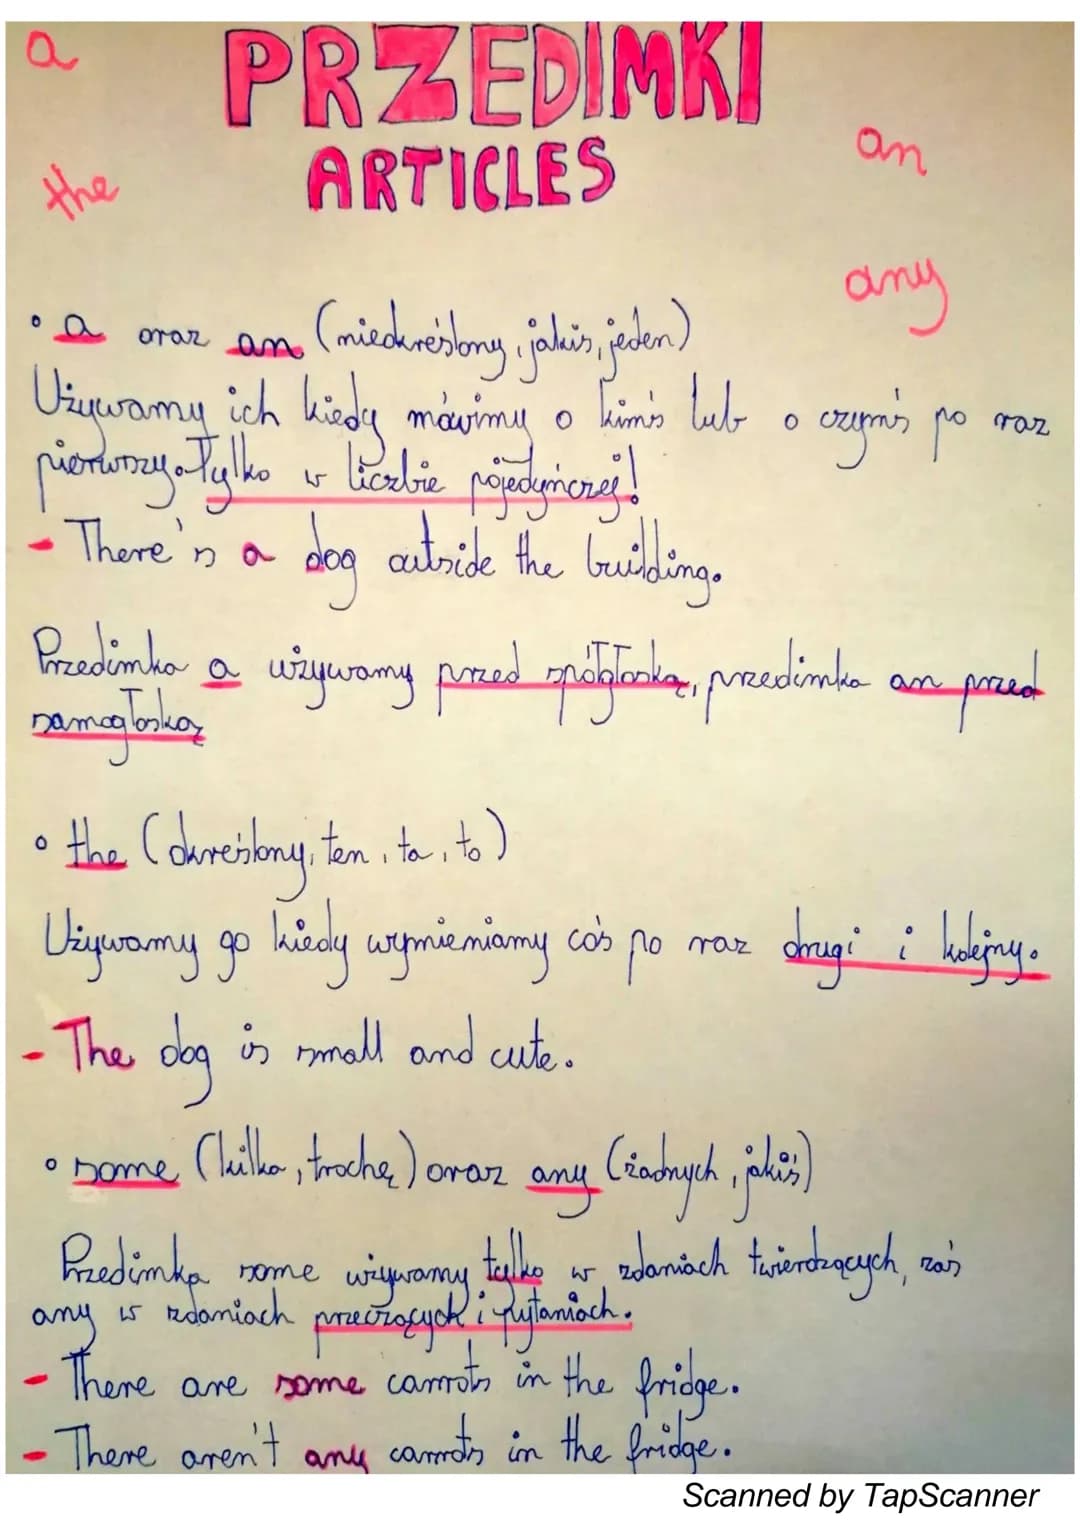 a
PRZEDIMKI
an
the
ARTICLES
any
• a oraz an (nieokreślony, jakiś, jeden)
Używamy ich kiedy mówimy o kimś lub o czymś po raz
pierwszy. Tylko w liczbie pojedyńczej!
- There's a dog outside the building.
Przedimka a używamy przed spółgłoską, przedimka an przed
samogłoską
• the (określony, ten, ta, to)
Używamy go kiedy wymieniamy coś po raz drugi i kolejny.
- The dog is small and cute.
• some (kilka, trochę) oraz any (żadnych, jakiś)
Przedimka some używamy tylko w zdaniach twierdzących, zaś
any w zdaniach przeczących i pytaniach.
- There are some carrots in the fridge.
- There aren't any carrots in the fridge.
Scanned by TapScanner